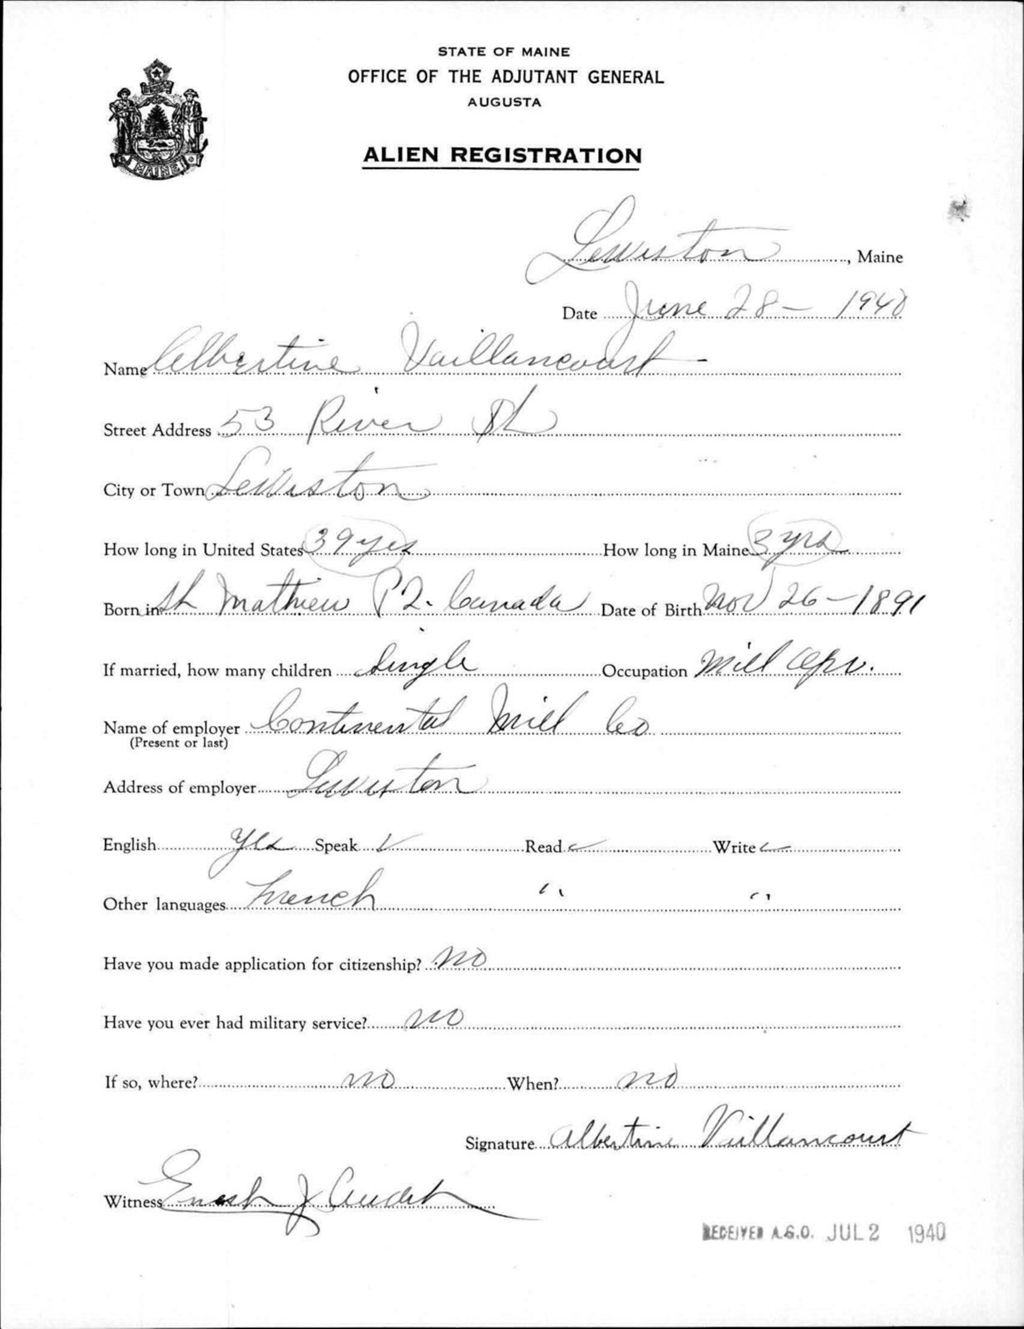 STATE OF MAINE
OFFICE OF THE ADJUTANT GENERAL
AUGUSTA
ALIEN REGISTRATION
MAINE
Lewiston, Maine
Date June 28 - 1940
Name Albertine Vaillancourt -
Street Address 53 River St
City or Town Lewiston
How long in United States 39 yrs How long in Maine 3 yrs
Born in St Mathieu P Q. Canada Date of Birth Nov 26 - 1891
If married, how many children Single Occupation Mill Opr.
Name of employer Continental Mill Co
(Present or last)
Address of employer Lewiston
English Yes Speak ✓ Read ✓ Write ✓
Other languages French " "
Have you made application for citizenship? No
Have you ever had military service? no
If so, where? no When? no
Signature Albertine Vaillancourt
Witness J Audet
RECEIVED A.G.O. JUL 2 1940